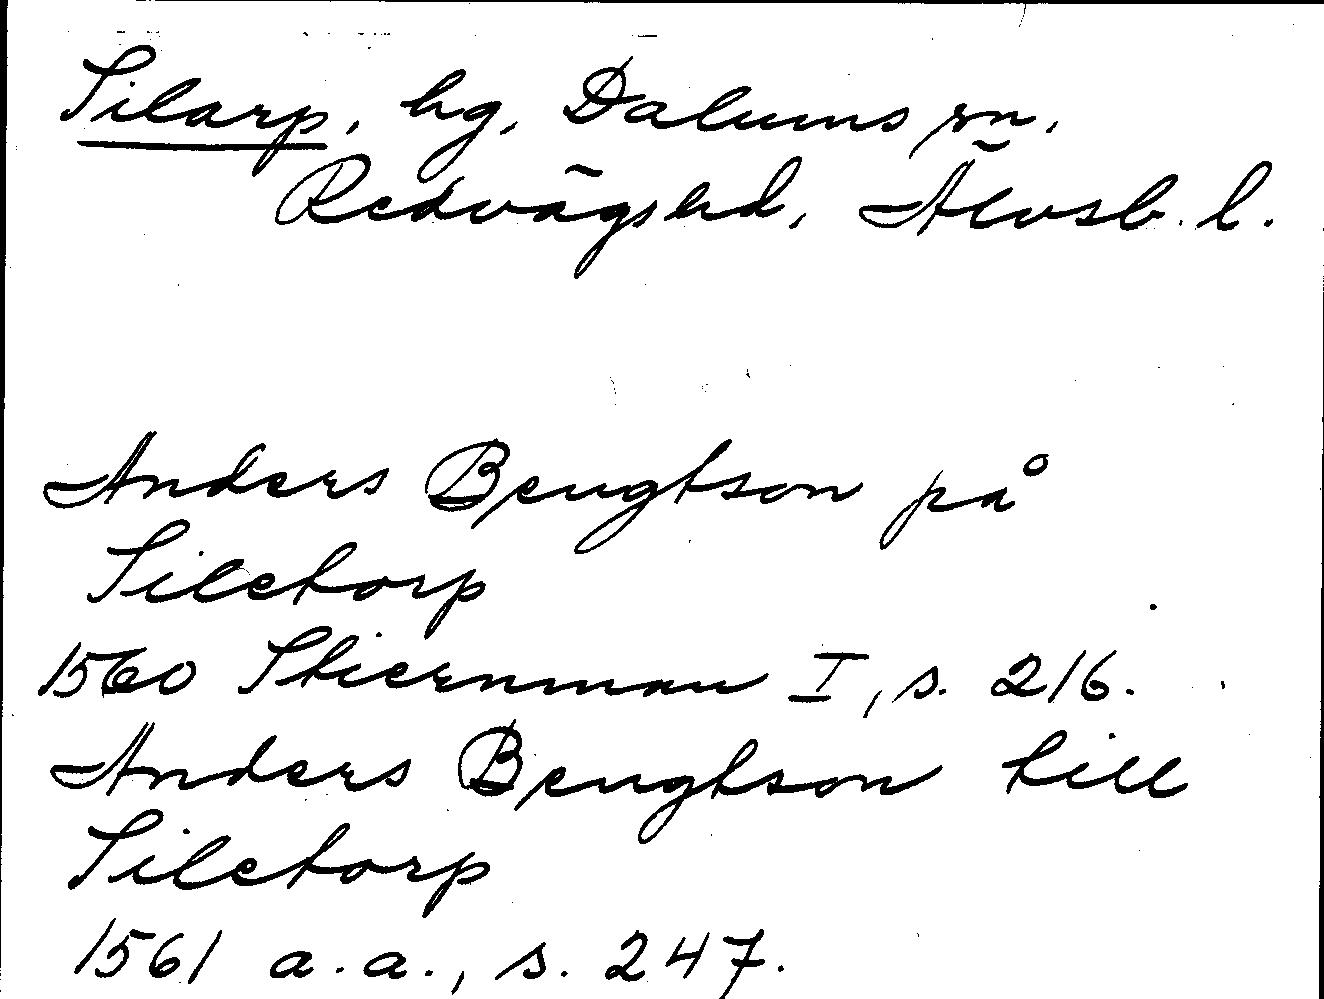 Silarp, hg, Dalums sn.
Redvägs hd, Älvsb. l.
Anders Bengtson på
Siletorp
1560 Stiernman I, s. 216.
Anders Bengtson till
Siletorp
1561 a.a., s. 247.